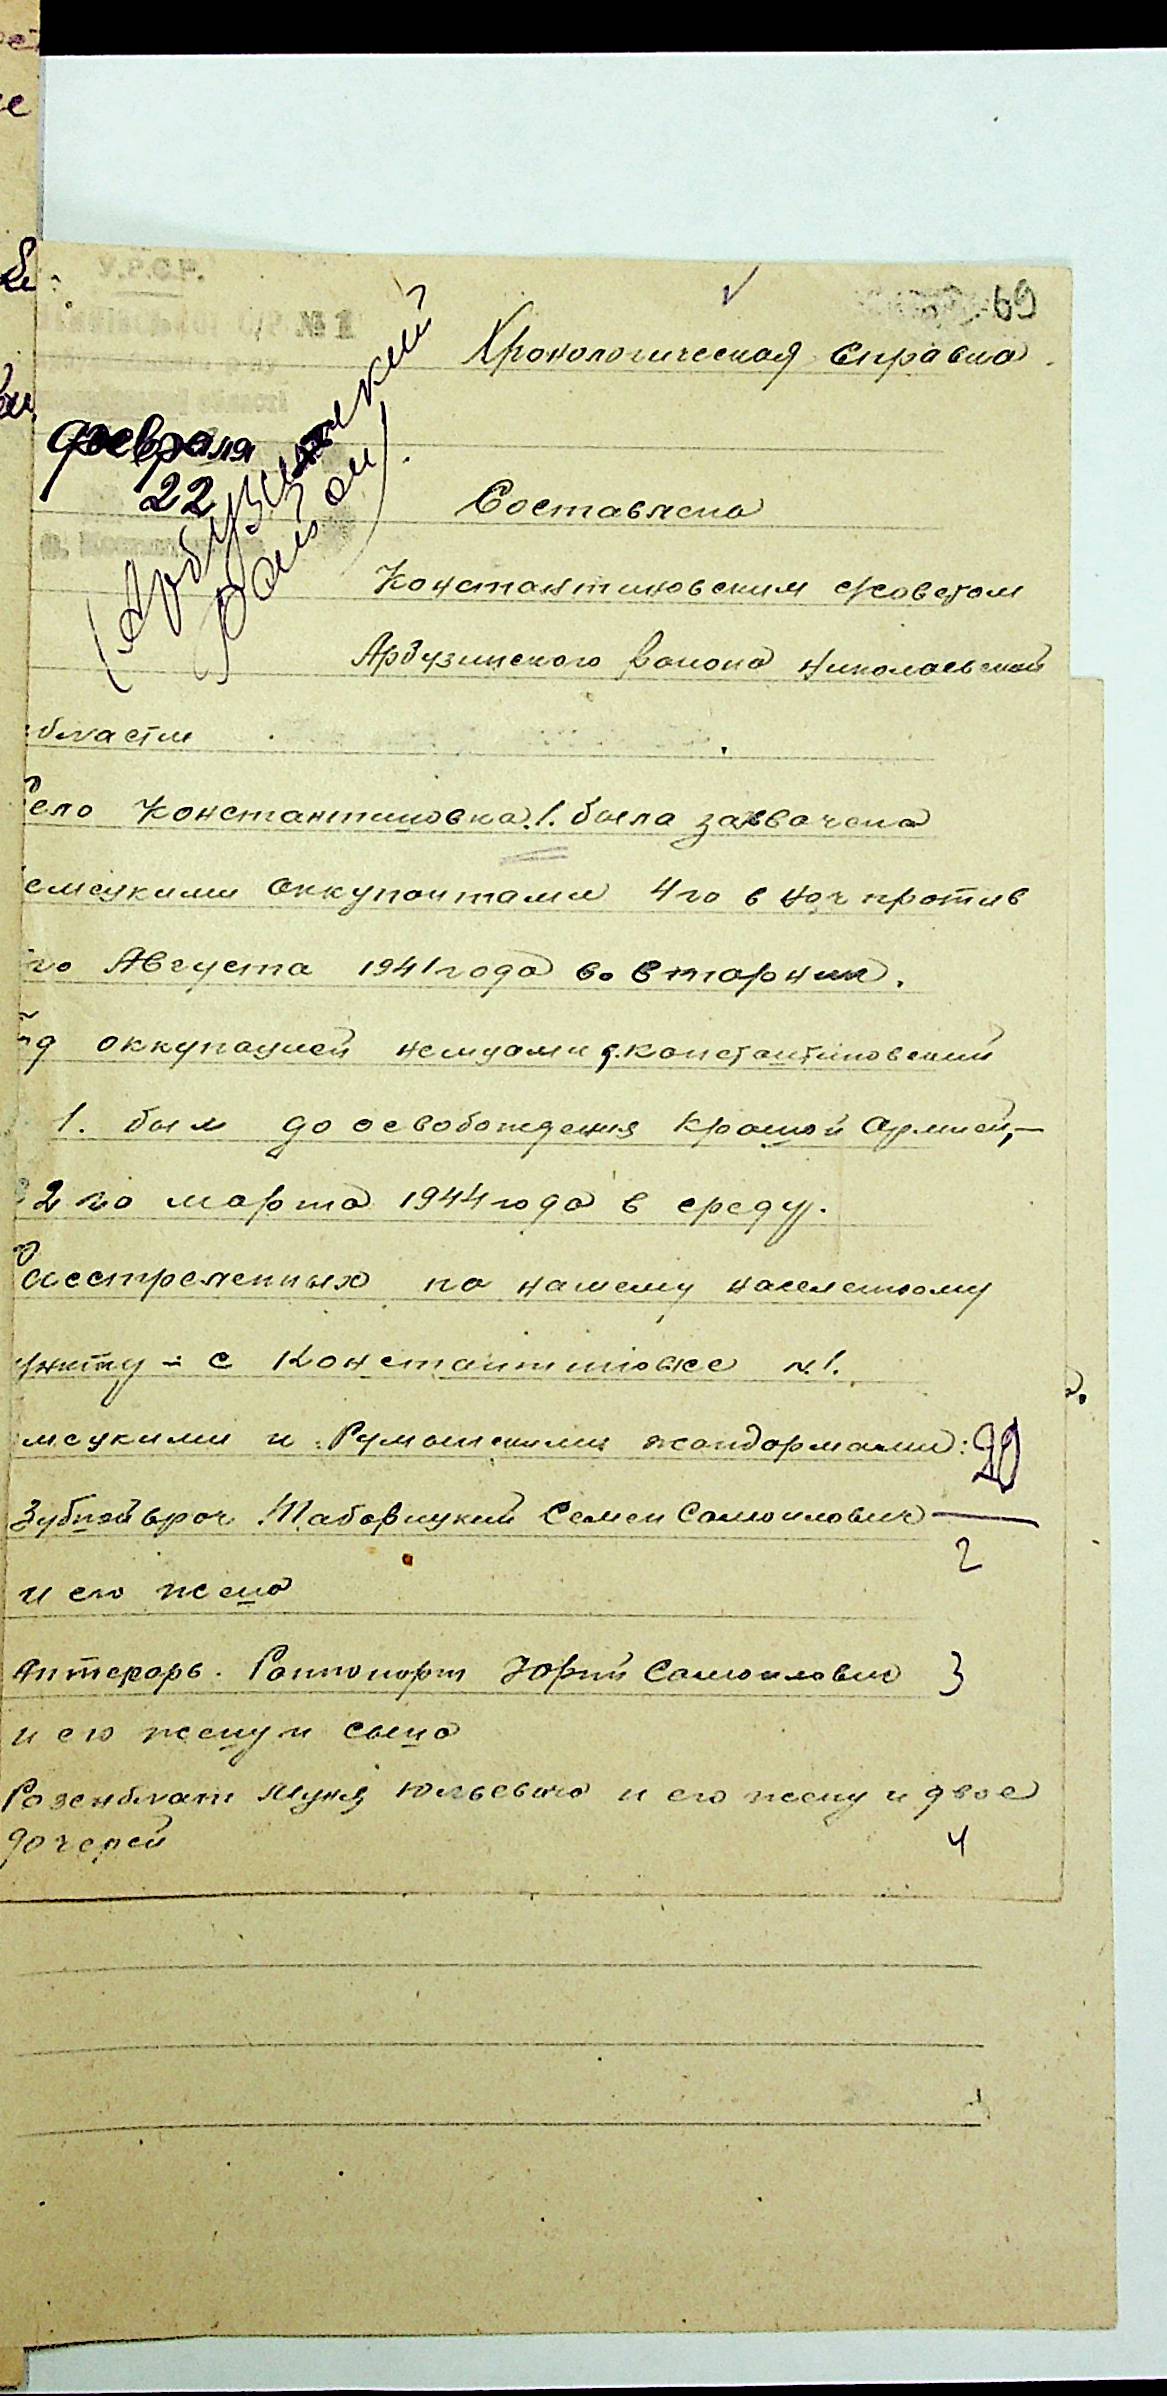 У.Р.С.Р.
№ 1
69
Хронологическая справка.
февраля
22
(Арбузинский
район).
Составлена
Константиновским с/советом
Арбузинского района Николаевской
области
село Константиновка.1. была захвачена
емецкими оккупонтами 4го в ноч против
го Августа 1941 года во вторник.
оккупацией немцами с.Константиновский
1. был до освобождения Красной армией,-
22 го марта 1944 года в среду.
Росстреленных по нашему населенному
ункту - с Константиновке №1.
мецкими и Румынскими жандормами: 20
Зубной врач Шаборицкий Семен Самоилович
2
и его жена
Аптекарь. Раппопорт Юрий Самоилович 3
и его жену и сына
Розенблат Муня Юльевича и его жену и двое
дочерей 4